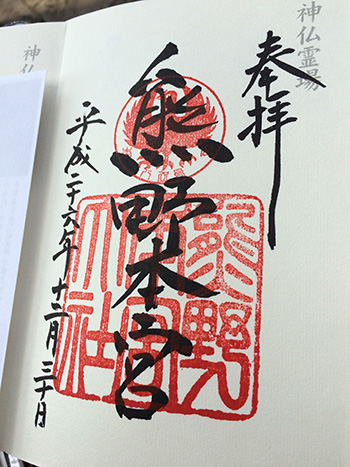 神仏霊場
奉拝
熊野本宮
熊野
本宮
大社
平成二十六年十二月三十日